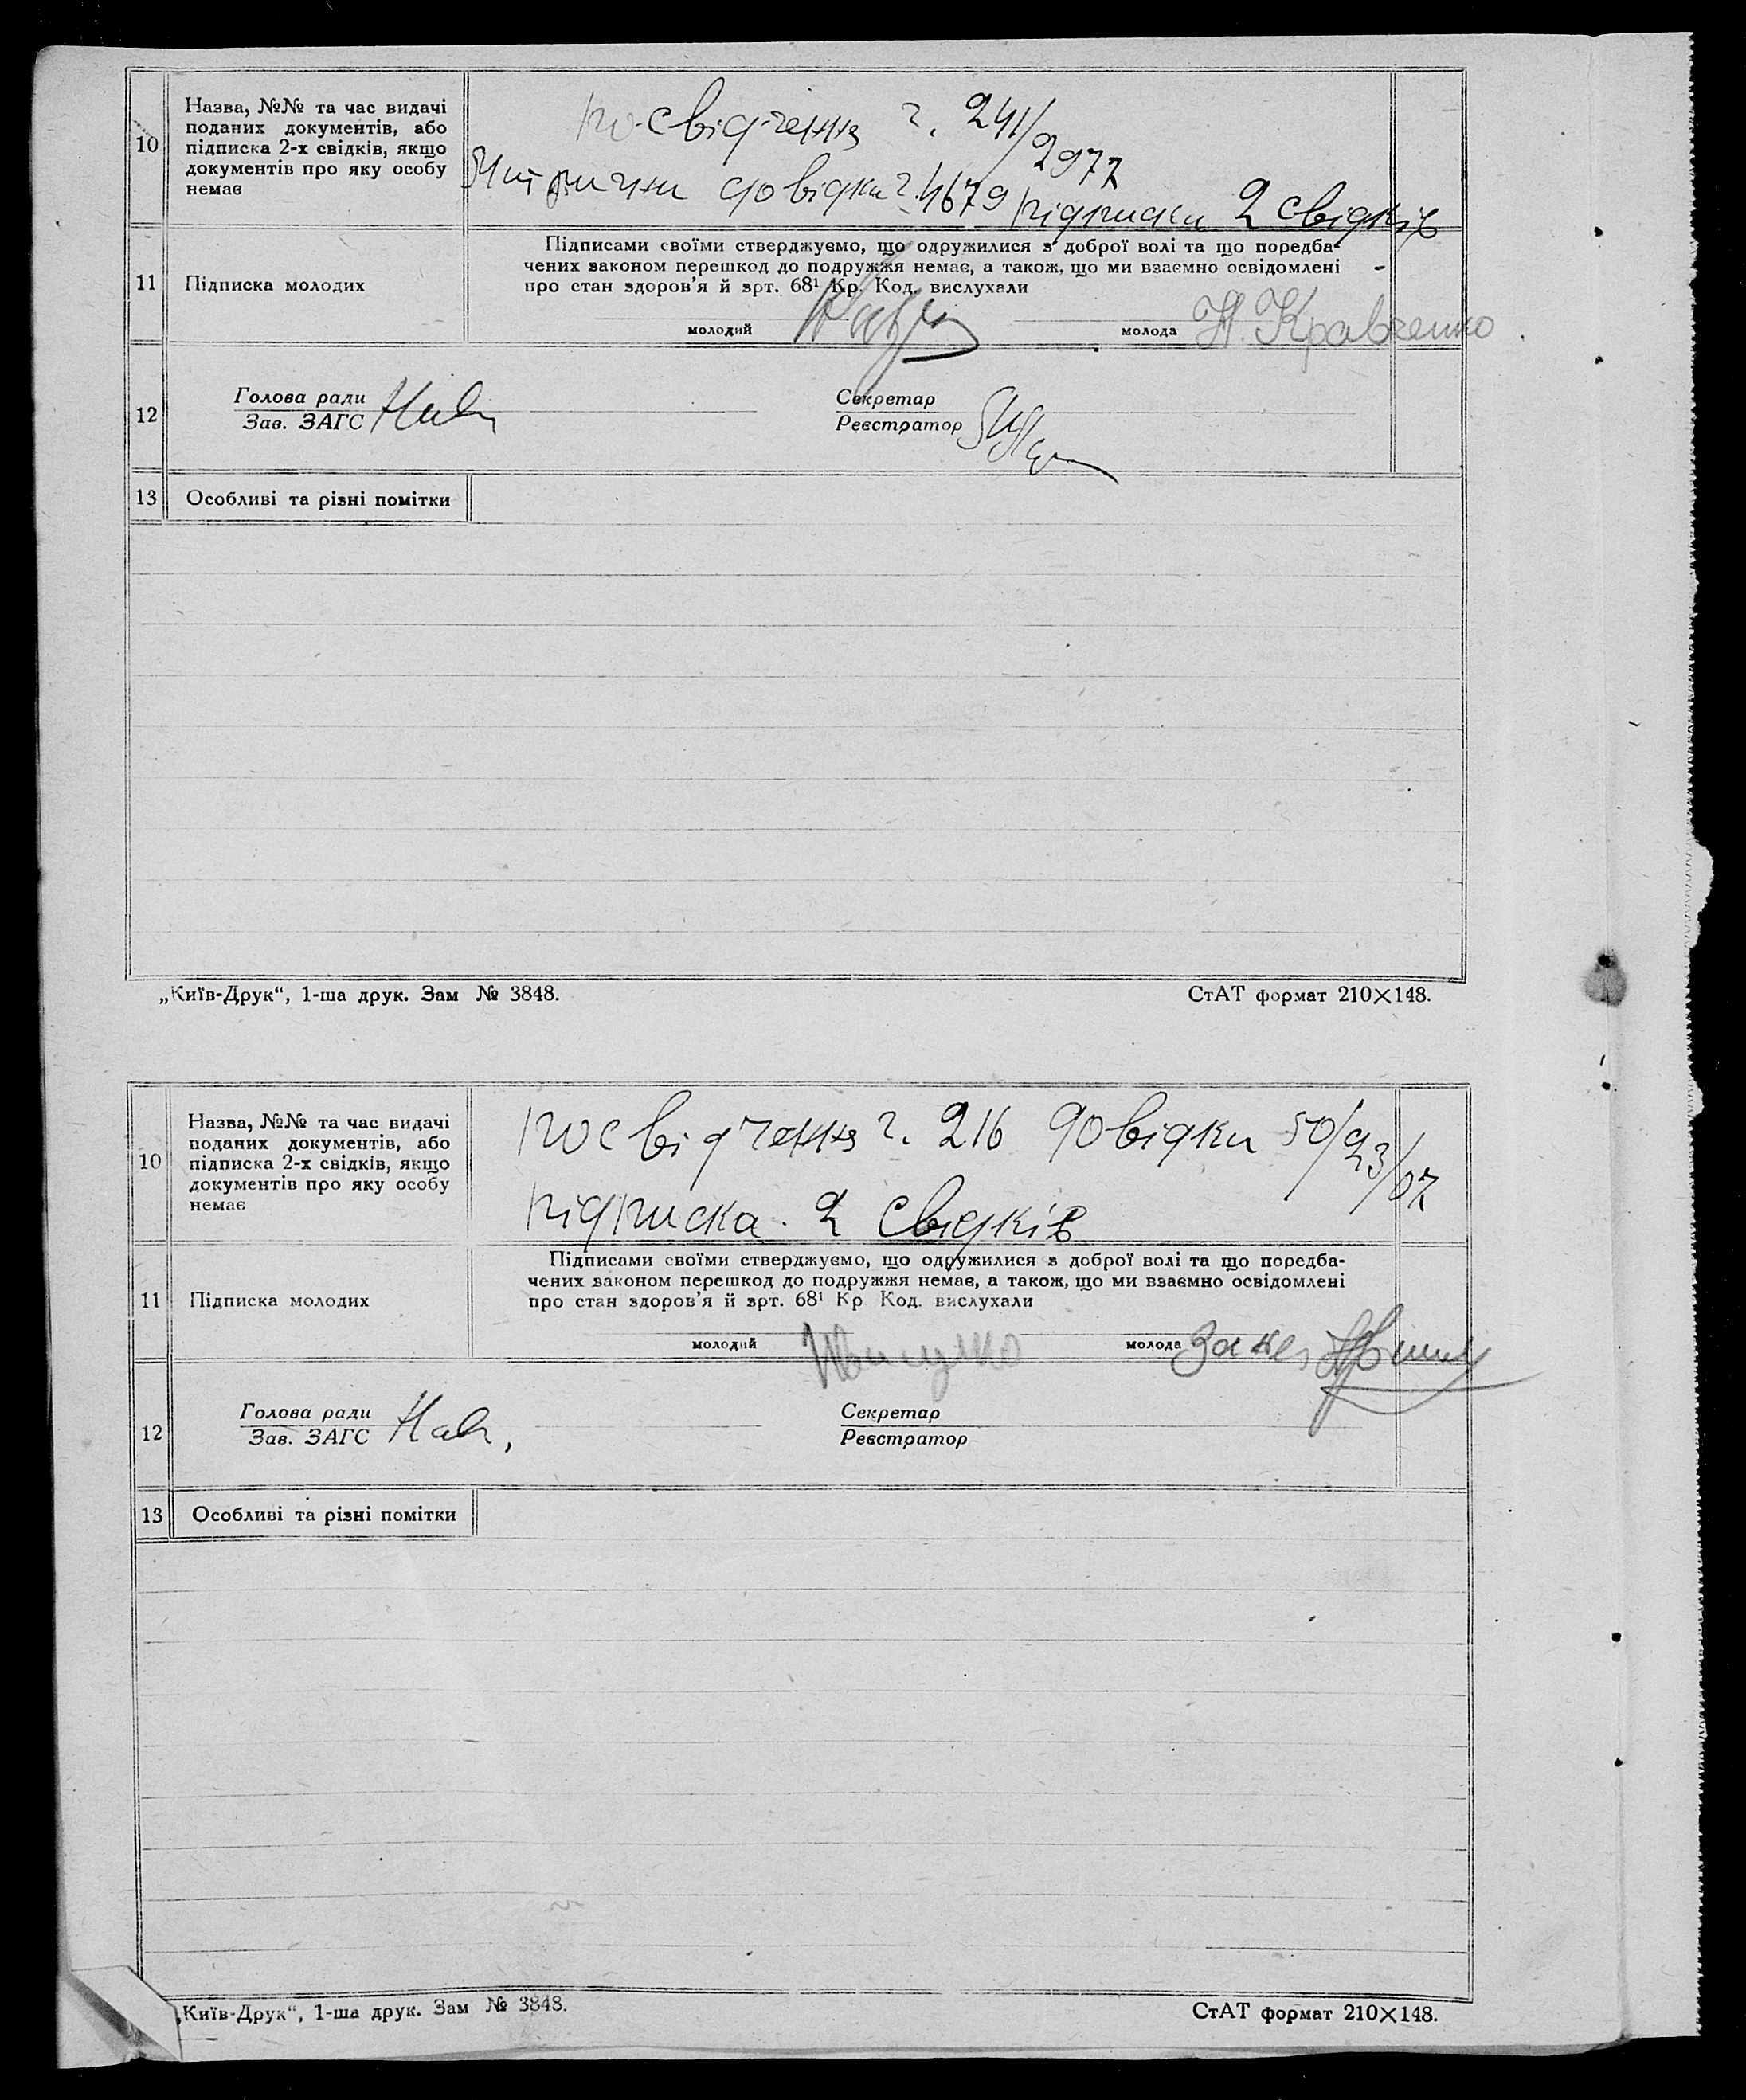 10
Назва, №№ та час видачі
поданих документів, або
підписка 2-х свідків, якщо
документів про яку особу
немає
посвідчення ч. 241/2977
довідки ч. 4679 підписки 2 свідків
11
Підписка молодих
Підписами своїми стверджуємо, що одружилися з доброї волі та що поредба-
чених законом перешкод до подружжя немає, а також, що ми взаємно освідомлені
про стан здоров'я й врт. 68¹ Кр. Код. вислухали
молодий
молода Н. Кравченко
12
Голова ради
Зав. ЗАГС
Секретар
Реєстратор
13
Особливі та різні помітки
„Київ-Друк“, 1-ша друк. Зам № 3848.
СтАТ формат 210×148.
10
Назва, №№ та час видачі
поданих документів, або
підписка 2-х свідків, якщо
документів про яку особу
немає
посвідчення ч. 216 довідки 50/923/07
підписка 2 свідків
11
Підписка молодих
Підписами своїми стверджуємо, що одружилися з доброї волі та що поредба-
чених законом перешкод до подружжя немає, а також, що ми взаємно освідомлені
про стан здоров'я й врт. 68¹ Кр Код. вислухали
молодий
молода
12
Голова ради
Зав. ЗАГС
Секретар
Реєстратор
13
Особливі та різні помітки
„Київ-Друк“, 1-ша друк. Зам № 3848.
СтАТ формат 210×148.